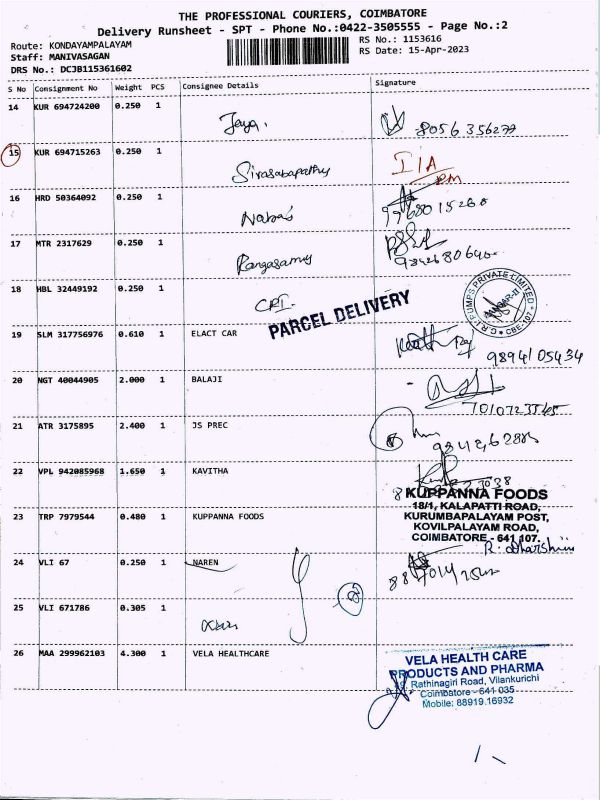 THE PROFESSIONAL COURIERS, COIMBATORE
Delivery Runsheet - SPT - Phone No.:0422-3505555 - Page No.:2
Route: KONDAYAMPALAYAM
RS No.: 1153616
Staff: MANIVASAGAN
RS Date: 15-Apr-2023
DRS No.: DCJB115361602
S No Consignment No Weight PCS Consignee Details Signature
14 KUR 694724200 0.250 1 Jaya. 8056356277
15 KUR 694715263 0.250 1 I/A
16 HRD 50364092 0.250 1
17 MTR 2317629 0.250 1 Rangasamy
18 HBL 32449192 0.250 1 CRI.
PARCEL DELIVERY
PUMPS PRIVATE LIMITED
CBE-107
19 SLM 317756976 0.610 1 ELACT CAR 9894105434
20 NGT 40044905 2.000 1 BALAJI
21 ATR 3175895 2.400 1 JS PREC
22 VPL 942085968 1.650 1 KAVITHA
23 TRP 7979544 0.480 1 KUPPANNA FOODS
KUPPANNA FOODS
18/1, KALAPATTI ROAD,
KURUMBAPALAYAM POST,
KOVILPALAYAM ROAD,
COIMBATORE - 641 107.
R. Dharshini
24 VLI 67 0.250 1 NAREN
25 VLI 671786 0.305 1
26 MAA 299962103 4.300 1 VELA HEALTHCARE
VELA HEALTH CARE
PRODUCTS AND PHARMA
Rathinagiri Road, Vilankurichi
Coimbatore - 641 035
Mobile: 88919 16932